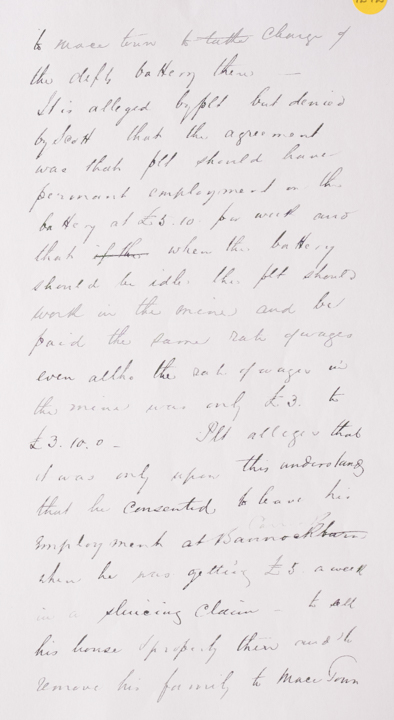 to mace town to take charge of
the defts battery there —
It is alleged by plt but denied
by Scott that the agreement
was that plt should have
permanent employment on the
battery at £3.10 per week and
that if the when the battery
should be idle the plt should
work in the mine and be
paid the same rate of wages
even altho the rate of wages in
the mine was only £3. to
£3.10.0 – Plt alleges that
it was only upon this understandg
that he consented to leave his
employment at Bannockburn
when he was getting £3. a week
in a sluicing claim – to sell
his house & property there and to
remove his family to Mace Town